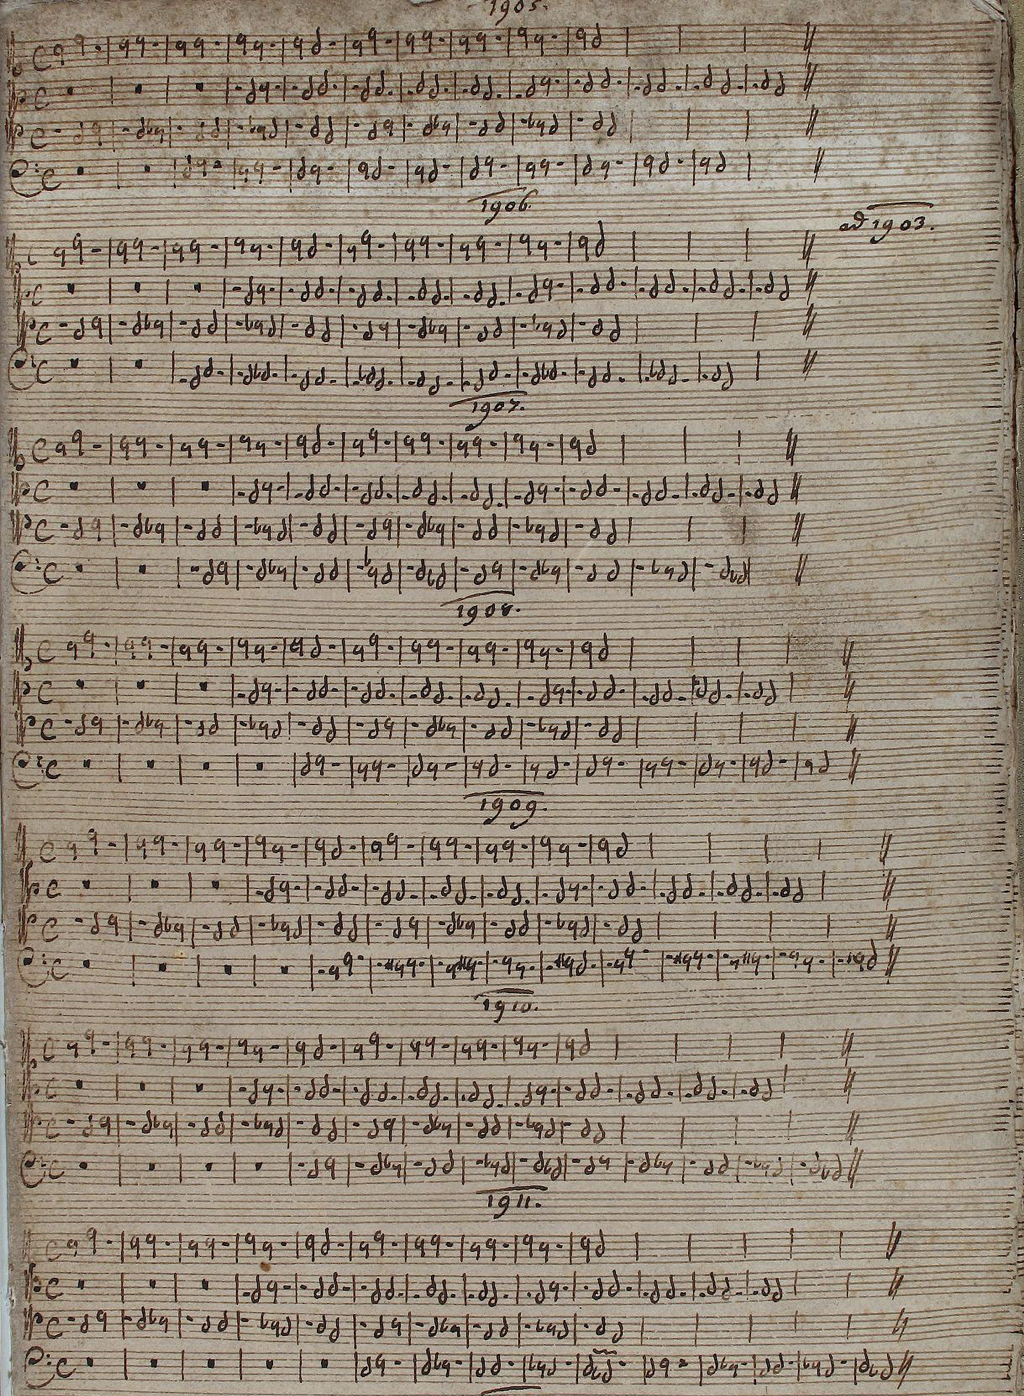 1905.
1906.
ad 1903.
1907.
1908.
1909.
1910.
1911.